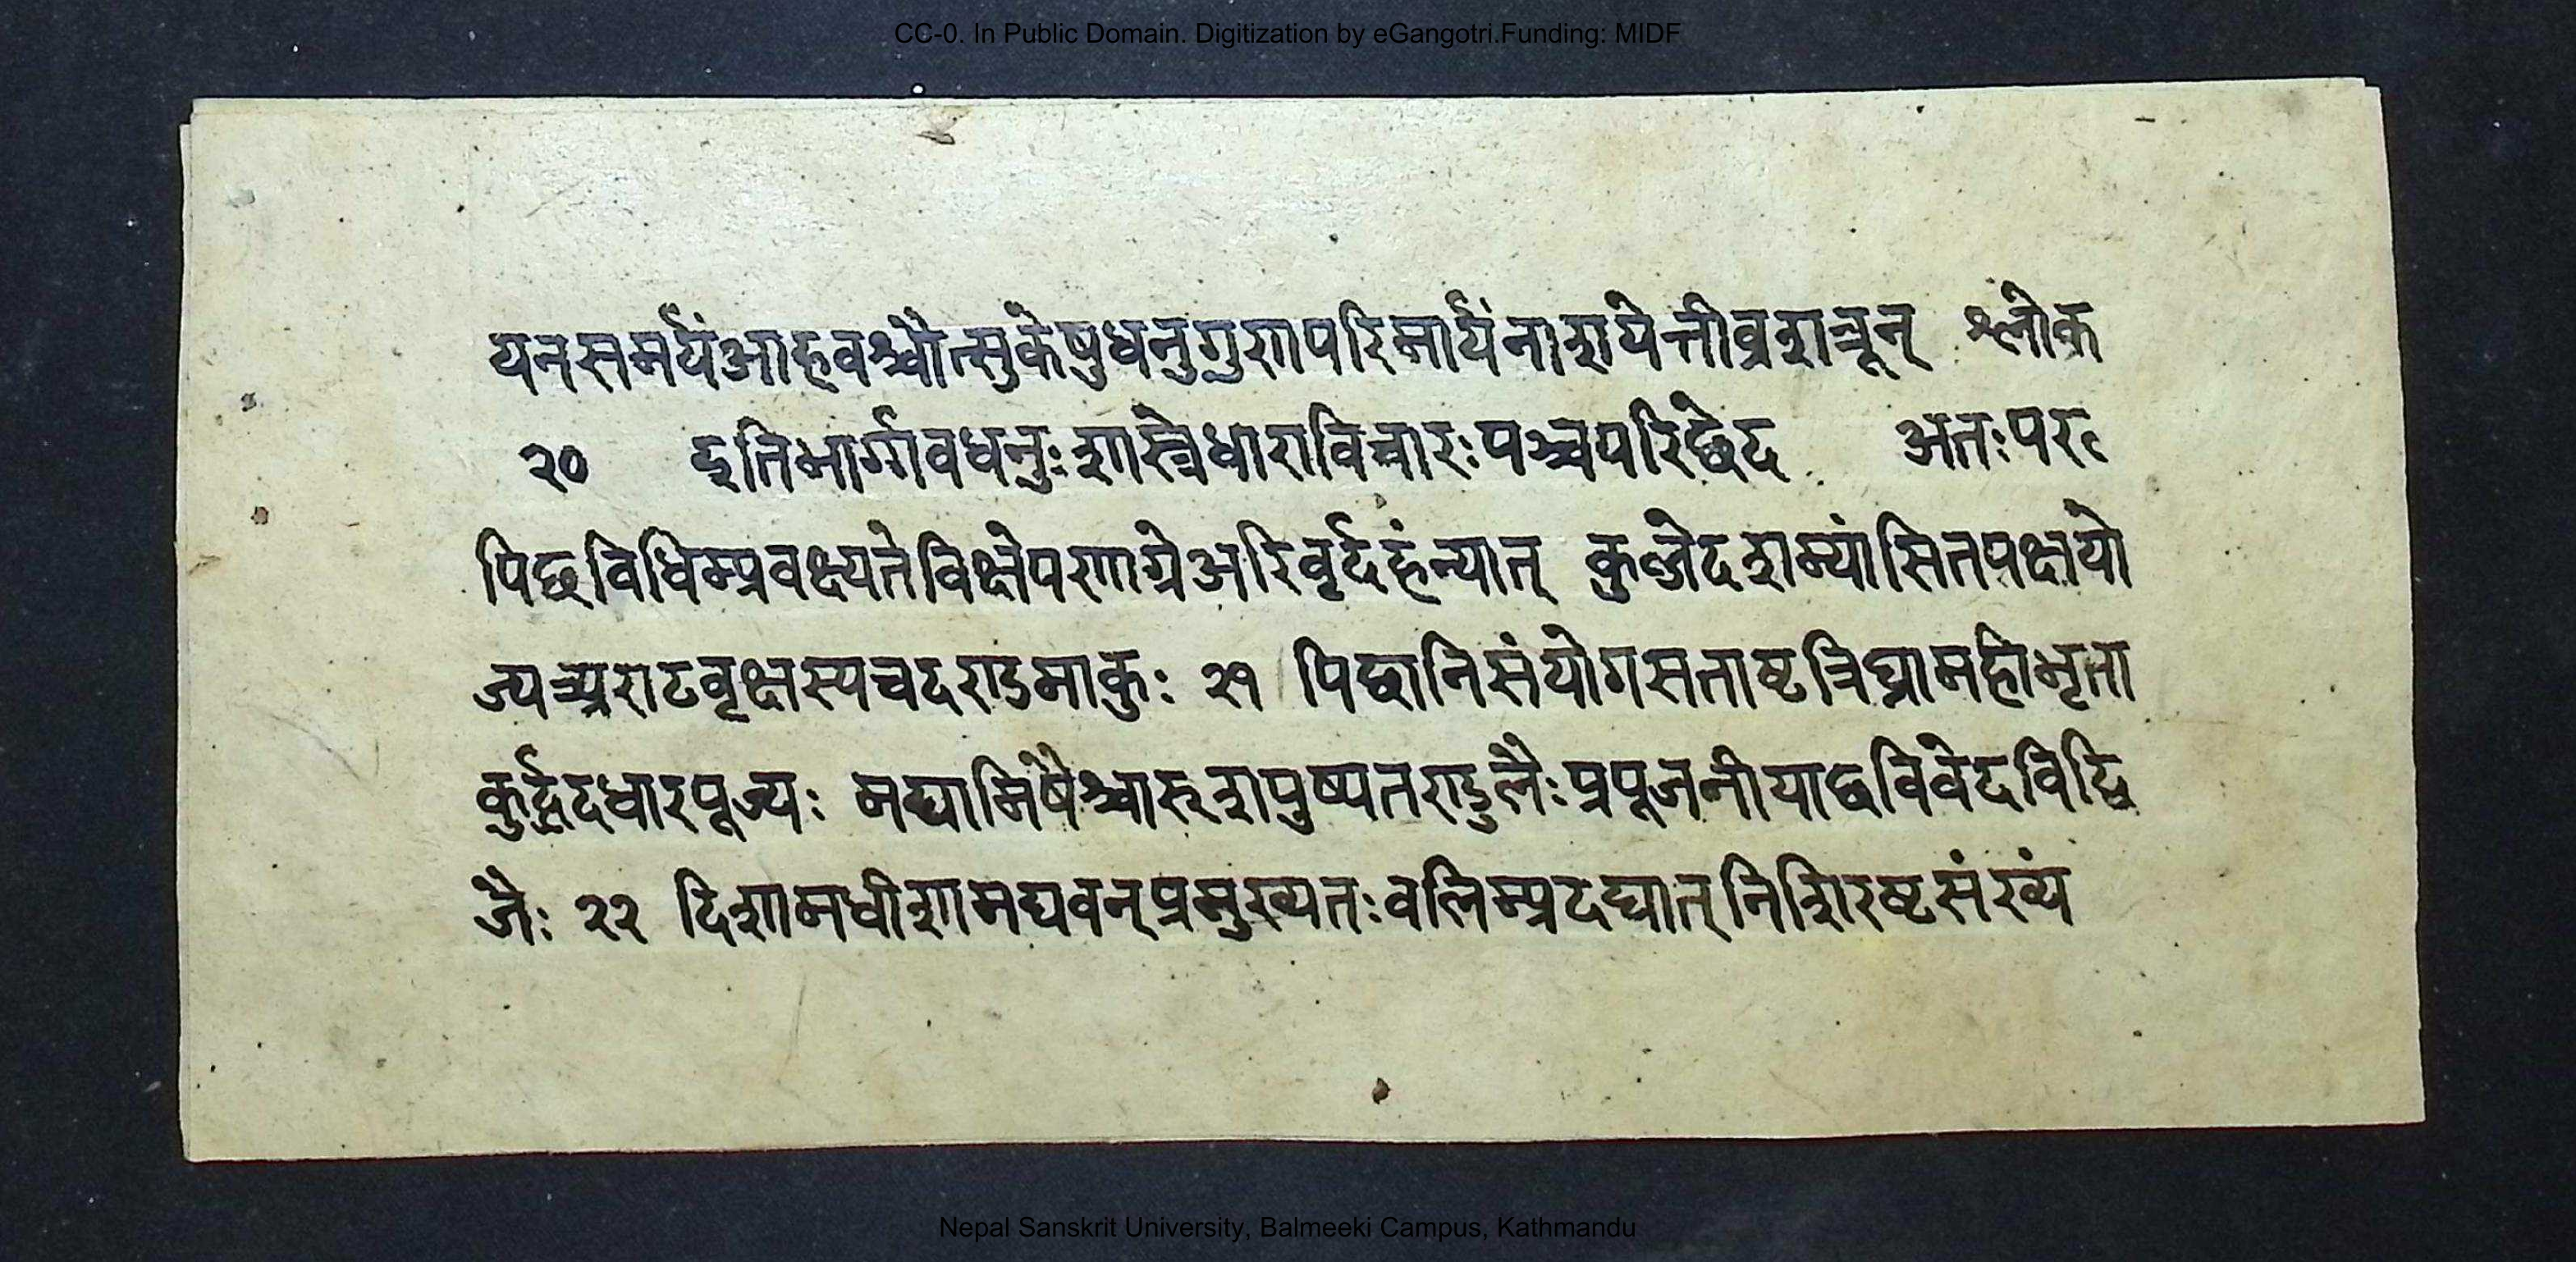 CC-0. In Public Domain. Digitization by eGangotri.Funding: MIDF
यनसमर्यंआहवश्चौत्सुकेषुधनुगुणपरिमार्यंनाशयेत्तीव्रशत्रून् श्लोक
२० इतिभार्गावधनुःशास्त्रेधाराविचारःपञ्चपरिछेद अतःपर
पिछविधिम्प्रवक्ष्यतेविक्षेपणाग्रेअरिवृर्दहंन्यात् कुण्जेदशम्यांसितपक्षयो
वृक्षस्यचदशङमाकुः २१ पिछानिसंयोगसताष्टत्रिघ्रामहीभृता
कुर्द्वदधारपूज्यः मद्यामिषैश्चारुत्रापुष्पतराडुलैःप्रपूजनीयाद्वविवेदविद्वि
जैः २२ दिशामधीशामद्यवन्प्रमुख्यतःवलिम्प्रदद्यात्निशिरष्टसंख्यं
Nepal Sanskrit University, Balmeeki Campus, Kathmandu